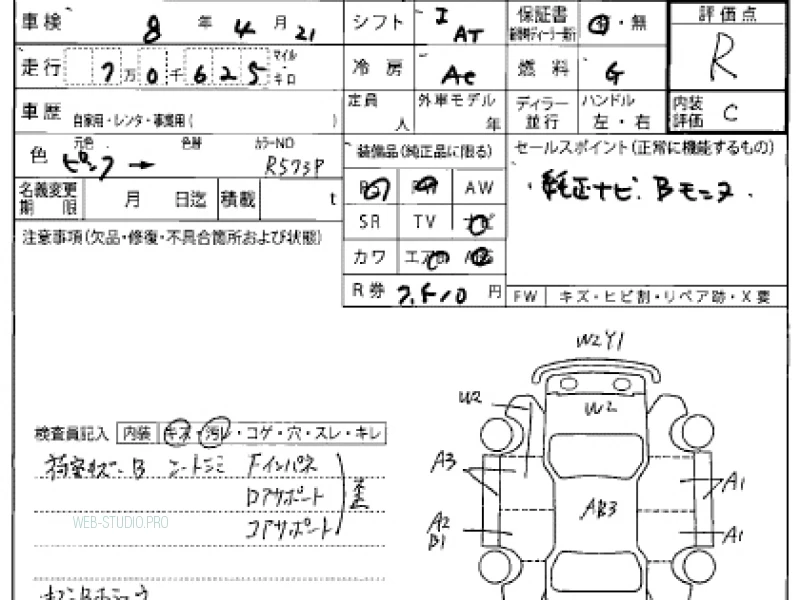 車検 8 年 4 月 21 シフト I AT 保証書 有・無 評価点
走行 7 万 0 千 625 マイル・キロ 冷房 AC 燃料 G R
車歴 自家用・レンタ・事業用( ) 定員 人 外車モデル 年 ディラー並行 ハンドル 左・右 内装評価 C
色 元色 ピンク → 色替 カラーNO R573P 装備品(純正品に限る) セールスポイント(正常に機能するもの)
・純正ナビ. Bモニタ.
AW
名義変更期限 月 日迄 積載 t SR TV ナビ
注意事項(欠品・修復・不具合箇所および状態) カワ エアB
R券 円 FW キズ・ヒビ割・リペア跡・X要
W2Y1
W2
W2
検査員記入 内装 キズ・汚レ・コゲ・穴・スレ・キレ
荷室キズ-B シートシミ Fインパネ
A3 A1
Dアサポート
AB3
コアサポート
A2 A1
B1
WEB-STUDIO.PRO